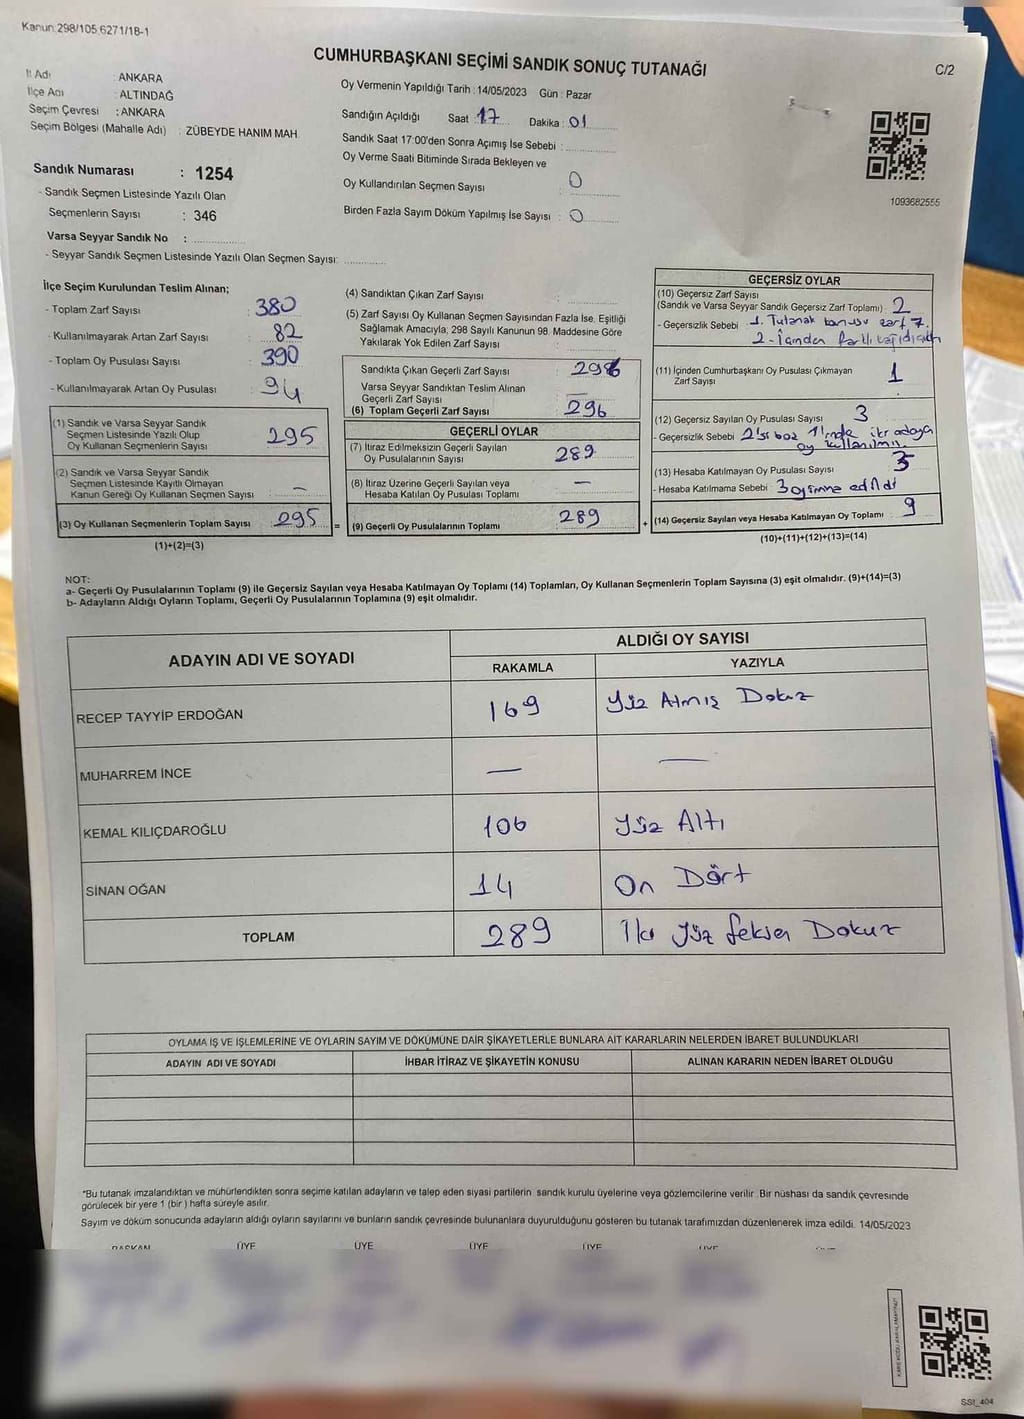 Kanun:298/105,6271/18-1
CUMHURBAŞKANI SEÇİMİ SANDIK SONUÇ TUTANAĞI
C/2
İl Adı : ANKARA
İlçe Adı : ALTINDAĞ
Seçim Çevresi : ANKARA
Seçim Bölgesi (Mahalle Adı) : ZÜBEYDE HANIM MAH.
Oy Vermenin Yapıldığı Tarih : 14/05/2023 Gün : Pazar
Sandığın Açıldığı Saat : 17 Dakika : 01
Sandık Saat 17:00'den Sonra Açımış İse Sebebi :
Oy Verme Saati Bitiminde Sırada Bekleyen ve
Oy Kullandırılan Seçmen Sayısı : 0
Birden Fazla Sayım Döküm Yapılmış İse Sayısı : 0
1093682555
Sandık Numarası : 1254
- Sandık Seçmen Listesinde Yazılı Olan
Seçmenlerin Sayısı : 346
Varsa Seyyar Sandık No :
- Seyyar Sandık Seçmen Listesinde Yazılı Olan Seçmen Sayısı:
İlçe Seçim Kurulundan Teslim Alınan;
- Toplam Zarf Sayısı : 380
- Kullanılmayarak Artan Zarf Sayısı : 82
- Toplam Oy Pusulası Sayısı : 390
- Kullanılmayarak Artan Oy Pusulası : 94
(1) Sandık ve Varsa Seyyar Sandık
Seçmen Listesinde Yazılı Olup
Oy Kullanan Seçmenlerin Sayısı : 295
(2) Sandık ve Varsa Seyyar Sandık
Seçmen Listesinde Kayıtlı Olmayan
Kanun Gereği Oy Kullanan Seçmen Sayısı : —
(3) Oy Kullanan Seçmenlerin Toplam Sayısı : 295 =
(1)+(2)=(3)
(4) Sandıktan Çıkan Zarf Sayısı :
(5) Zarf Sayısı Oy Kullanan Seçmen Sayısından Fazla İse, Eşitliği
Sağlamak Amacıyla, 298 Sayılı Kanunun 98. Maddesine Göre
Yakılarak Yok Edilen Zarf Sayısı :
Sandıkta Çıkan Geçerli Zarf Sayısı : 296
Varsa Seyyar Sandıktan Teslim Alınan
Geçerli Zarf Sayısı : —
(6) Toplam Geçerli Zarf Sayısı : 296
GEÇERLİ OYLAR
(7) İtiraz Edilmeksizin Geçerli Sayılan
Oy Pusulalarının Sayısı : 289
(8) İtiraz Üzerine Geçerli Sayılan veya
Hesaba Katılan Oy Pusulası Toplamı : —
(9) Geçerli Oy Pusulalarının Toplamı : 289 +
GEÇERSİZ OYLAR
(10) Geçersiz Zarf Sayısı
(Sandık ve Varsa Seyyar Sandık Geçersiz Zarf Toplamı) : 2
- Geçersizlik Sebebi : 1. Tutanak konusu zarf
2- İçinden farklı
(11) İçinden Cumhurbaşkanı Oy Pusulası Çıkmayan
Zarf Sayısı : 1
(12) Geçersiz Sayılan Oy Pusulası Sayısı : 3
- Geçersizlik Sebebi : 2'si boş 1'inde iki adaya
oy kullanılmış
(13) Hesaba Katılmayan Oy Pusulası Sayısı : 3
- Hesaba Katılmama Sebebi : 3 edildi
(14) Geçersiz Sayılan veya Hesaba Katılmayan Oy Toplamı : 9
(10)+(11)+(12)+(13)=(14)
NOT:
a- Geçerli Oy Pusulalarının Toplamı (9) ile Geçersiz Sayılan veya Hesaba Katılmayan Oy Toplamı (14) Toplamları, Oy Kullanan Seçmenlerin Toplam Sayısına (3) eşit olmalıdır. (9)+(14)=(3)
b- Adayların Aldığı Oyların Toplamı, Geçerli Oy Pusulalarının Toplamına (9) eşit olmalıdır.
ADAYIN ADI VE SOYADI ALDIĞI OY SAYISI
RAKAMLA YAZIYLA
RECEP TAYYİP ERDOĞAN 169 Yüz Atmış Dokuz
MUHARREM İNCE — —
KEMAL KILIÇDAROĞLU 106 Yüz Altı
SİNAN OĞAN 14 On Dört
TOPLAM 289 İki Yüz Seksen Dokuz
OYLAMA İŞ VE İŞLEMLERİNE VE OYLARIN SAYIM VE DÖKÜMÜNE DAİR ŞİKAYETLERLE BUNLARA AİT KARARLARIN NELERDEN İBARET BULUNDUKLARI
ADAYIN ADI VE SOYADI İHBAR İTİRAZ VE ŞİKAYETİN KONUSU ALINAN KARARIN NEDEN İBARET OLDUĞU
*Bu tutanak imzalandıktan ve mühürlendikten sonra seçime katılan adayların ve talep eden siyasi partilerin sandık kurulu üyelerine veya gözlemcilerine verilir. Bir nüshası da sandık çevresinde
görülecek bir yere 1 (bir) hafta süreyle asılır.
Sayım ve döküm sonucunda adayların aldığı oyların sayılarını ve bunların sandık çevresinde bulunanlara duyurulduğunu gösteren bu tutanak tarafımızdan düzenlenerek imza edildi. 14/05/2023
BAŞKAN ÜYE ÜYE ÜYE ÜYE ÜYE
SSI_404